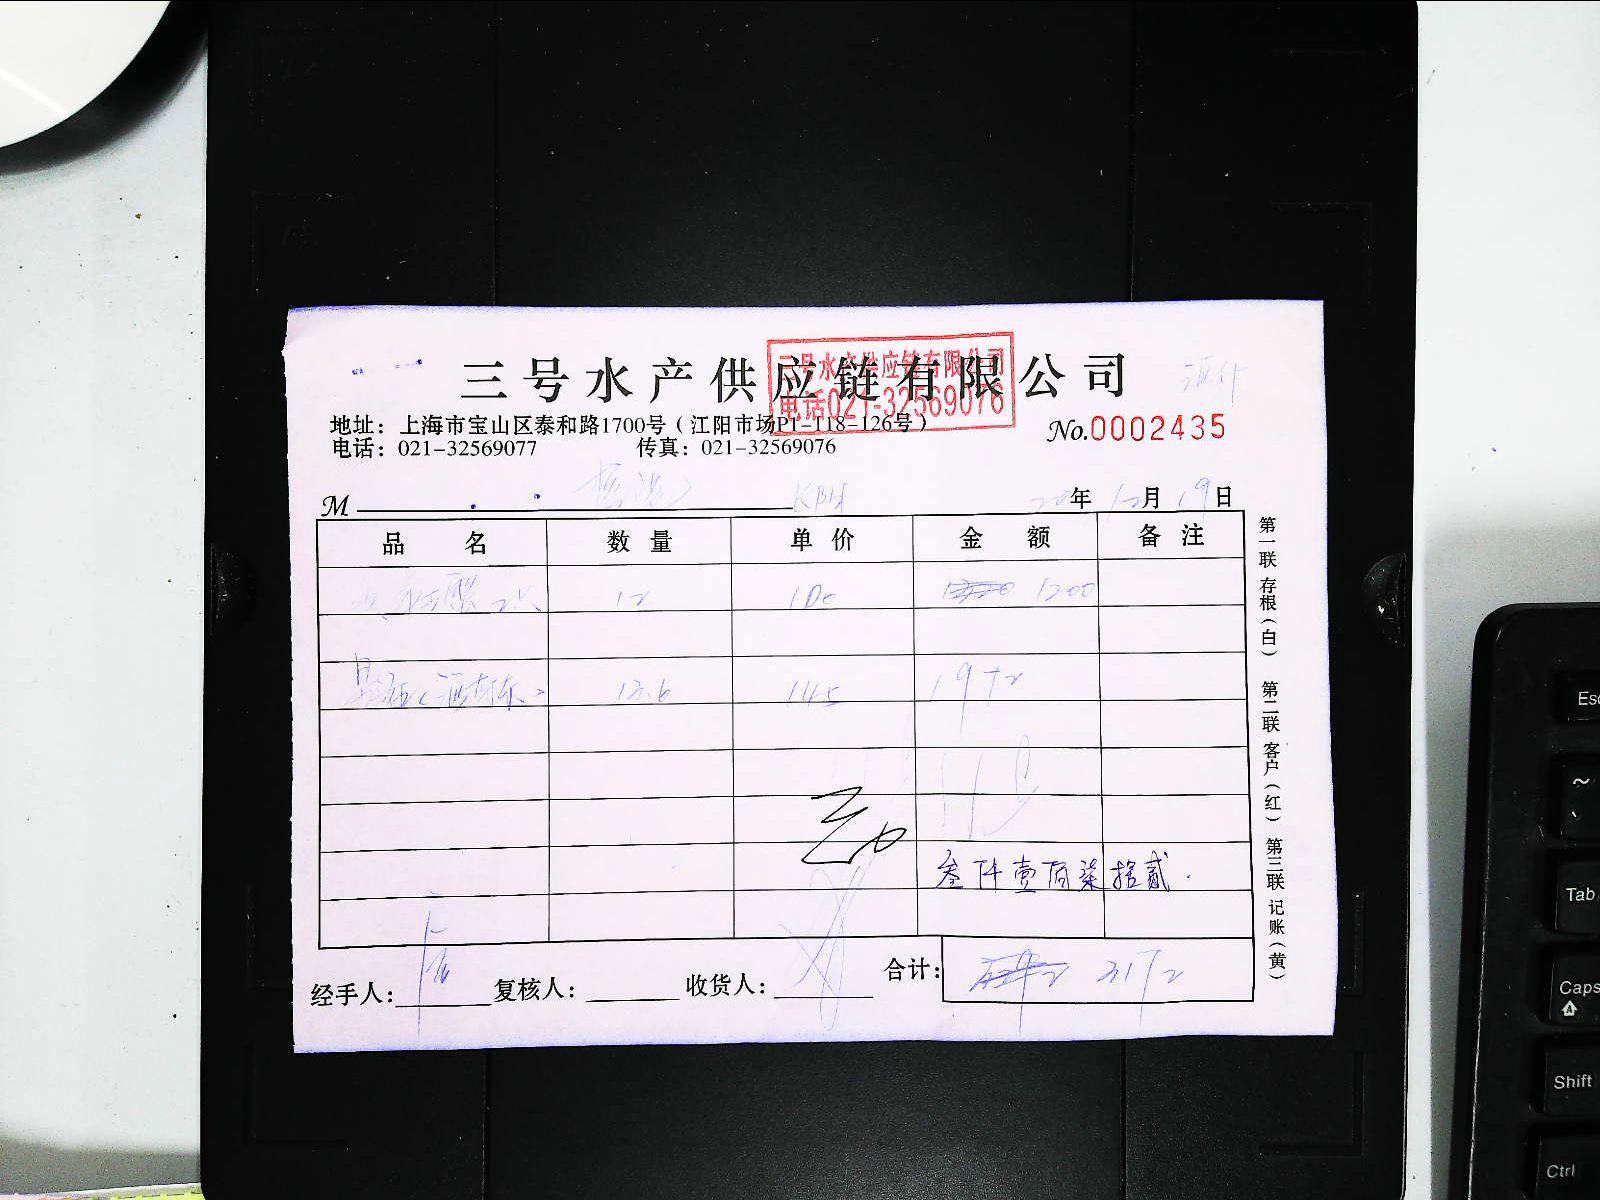 三号水产供应链有限公司
三号水产供应链有限公司
电话021-32569076
地址：上海市宝山区泰和路1700号（江阳市场P1-118-126号）
No.0002435
电话：021-32569077 传真：021-32569076
M 年 12月 19日
品名 数量 单价 金额 备注
12 100 1200
13.6 145 1972
叁仟壹佰柒拾贰.
经手人： 复核人： 收货人： 合计： 3172
第一联 存根（白） 第二联 客户（红） 第三联 记账（黄）
Esc
~
Tab
Caps
Shift
Ctrl